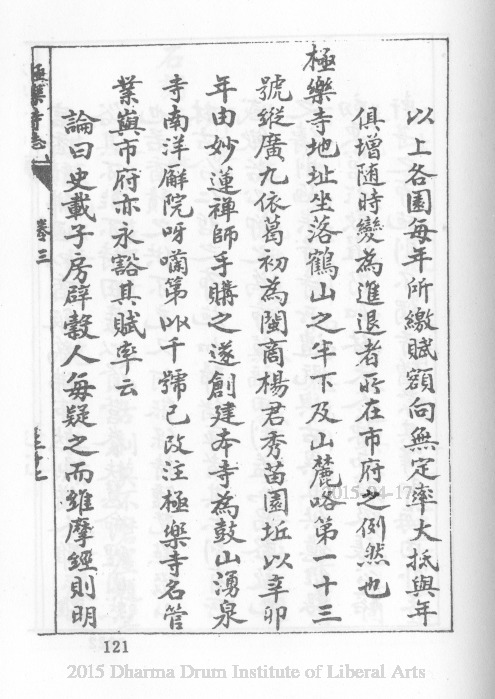 以上各園每年所繳賦額向無定率大抵與年
俱增随時變為進退者所在市府之例然也
極樂寺地址坐落鶴山之半下及山麓咯第一十三
號縱廣九依葛初為閩商楊君秀苗園坵以辛卯
年由妙蓮禪師手購之遂創建本寺為鼓山湧泉
寺南洋廨院呀囒第以千號已改注極樂寺名管
業嶼市府亦永豁其賦率云
論曰史載子房辟穀人每疑之而維摩經則明
極樂寺志
卷三
2015-04-17
121
2015 Dharma Drum Institute of Liberal Arts